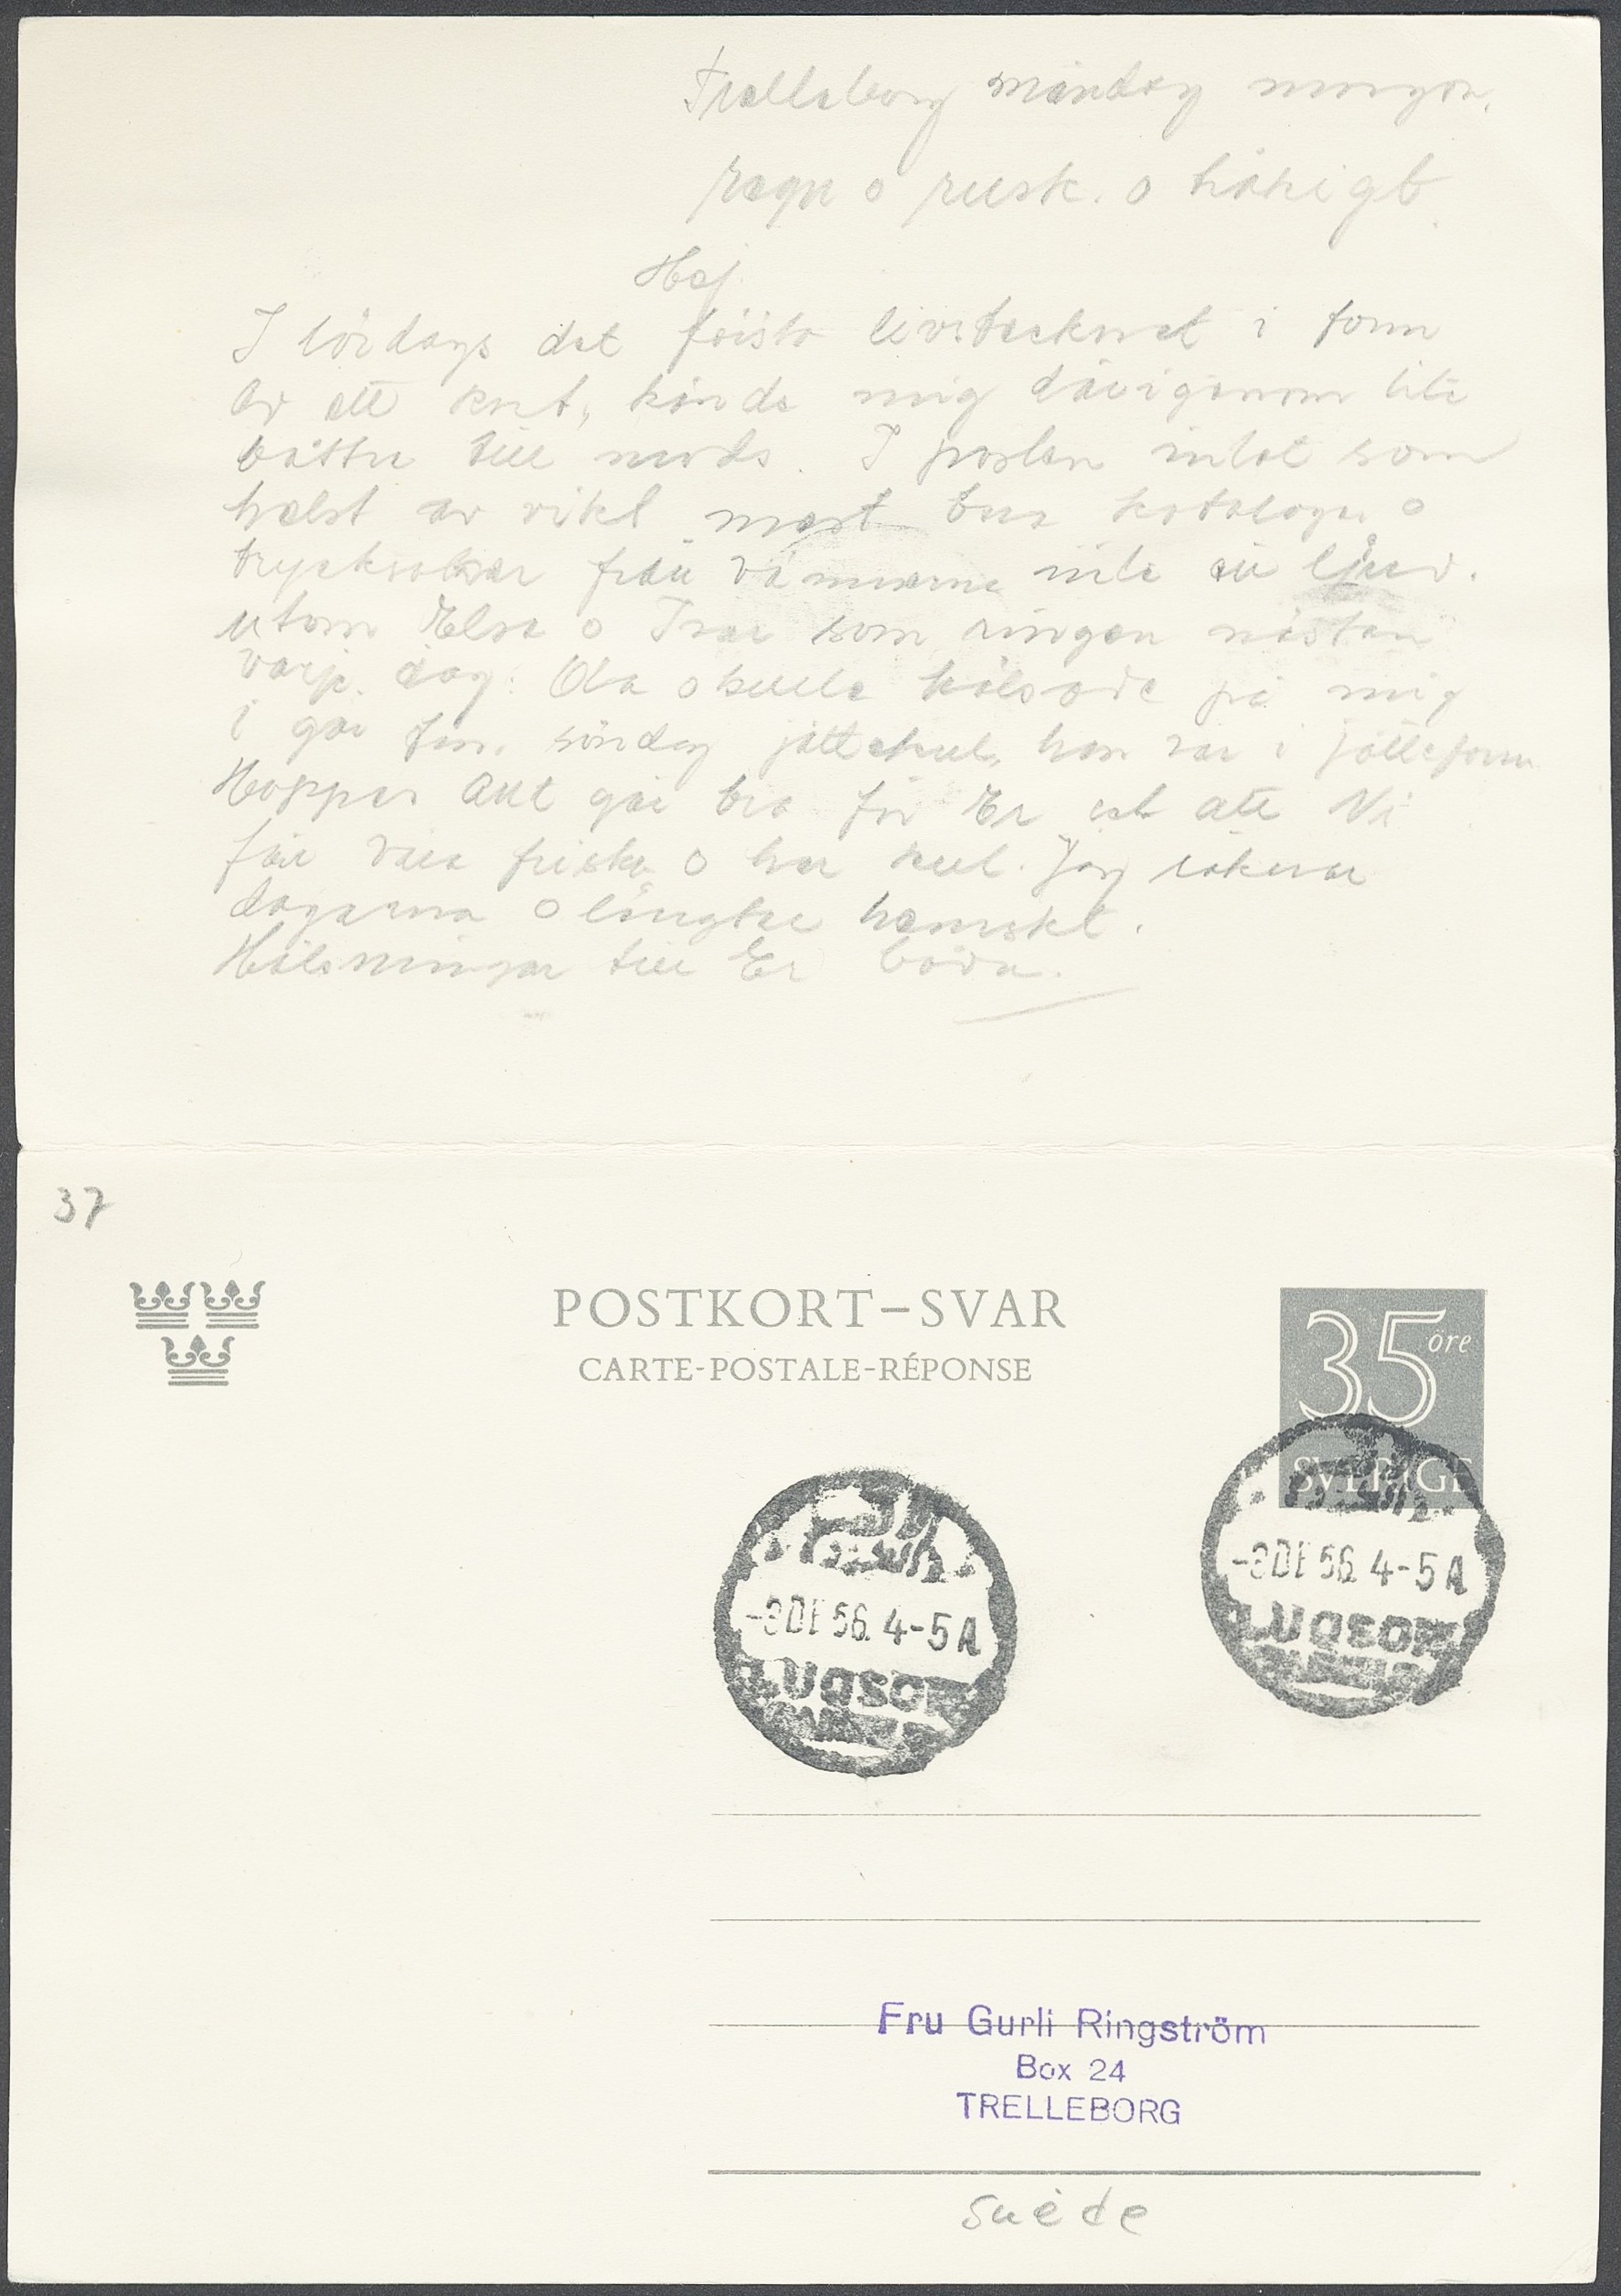 Trelleborg måndag morgon.
Regn o rusk. o
Hej.
I lördags det första livstecknet i form
av ett kort, kände mig därigenom lite
bättre till mods. I posten intet som
helst av vikt mest bara kataloger o
trycksaker från vännerna inte ett ljud.
utom Elsa o Ivar som ringer nästan
varje dag. Ola skulle hälsade på mig
i går fm. söndag jättekul, han var i jätteform
Hoppas Allt går bra för Er att Ni
får vara friska o har kul. Jag räknar
dagarna o längtar hemskt.
Hälsningar till Er båda.
37
POSTKORT–SVAR
CARTE-POSTALE-RÉPONSE
35 öre
SVERIGE
-9 DE 56. 4-5 A
LUQSOR
-9 DE 56. 4-5 A
LUQSOR
Fru Gurli Ringström
Box 24
TRELLEBORG
Suède